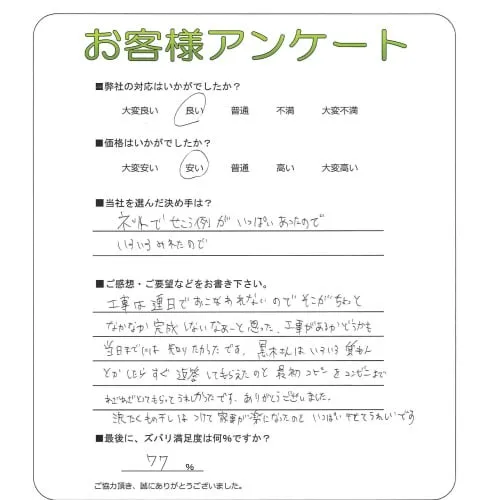 お客様アンケート
■弊社の対応はいかがでしたか？
大変良い 良い 普通 不満 大変不満
■価格はいかがでしたか？
大変安い 安い 普通 高い 大変高い
■当社を選んだ決め手は？
ネットでせこう例がいっぱいあったので
いろいろみれたので
■ご感想・ご要望などをお書き下さい。
工事は連日でおこなわれないのでそこがちょっと
なかなか完成しないなぁーと思った、工事があるかどうかも
当日までには知りたかったです。黒木さんはいろいろ質もん
とかしたらすぐ返答してもらえたのと最初コピーをコンビニまで
わざわざとってもらってうれしかったです、ありがとうございました。
洗たくもの干しはつけて家事が楽になったのといっぱい干せてうれしいです
■最後に、ズバリ満足度は何%ですか？
77 %
ご協力頂き、誠にありがとうございました。